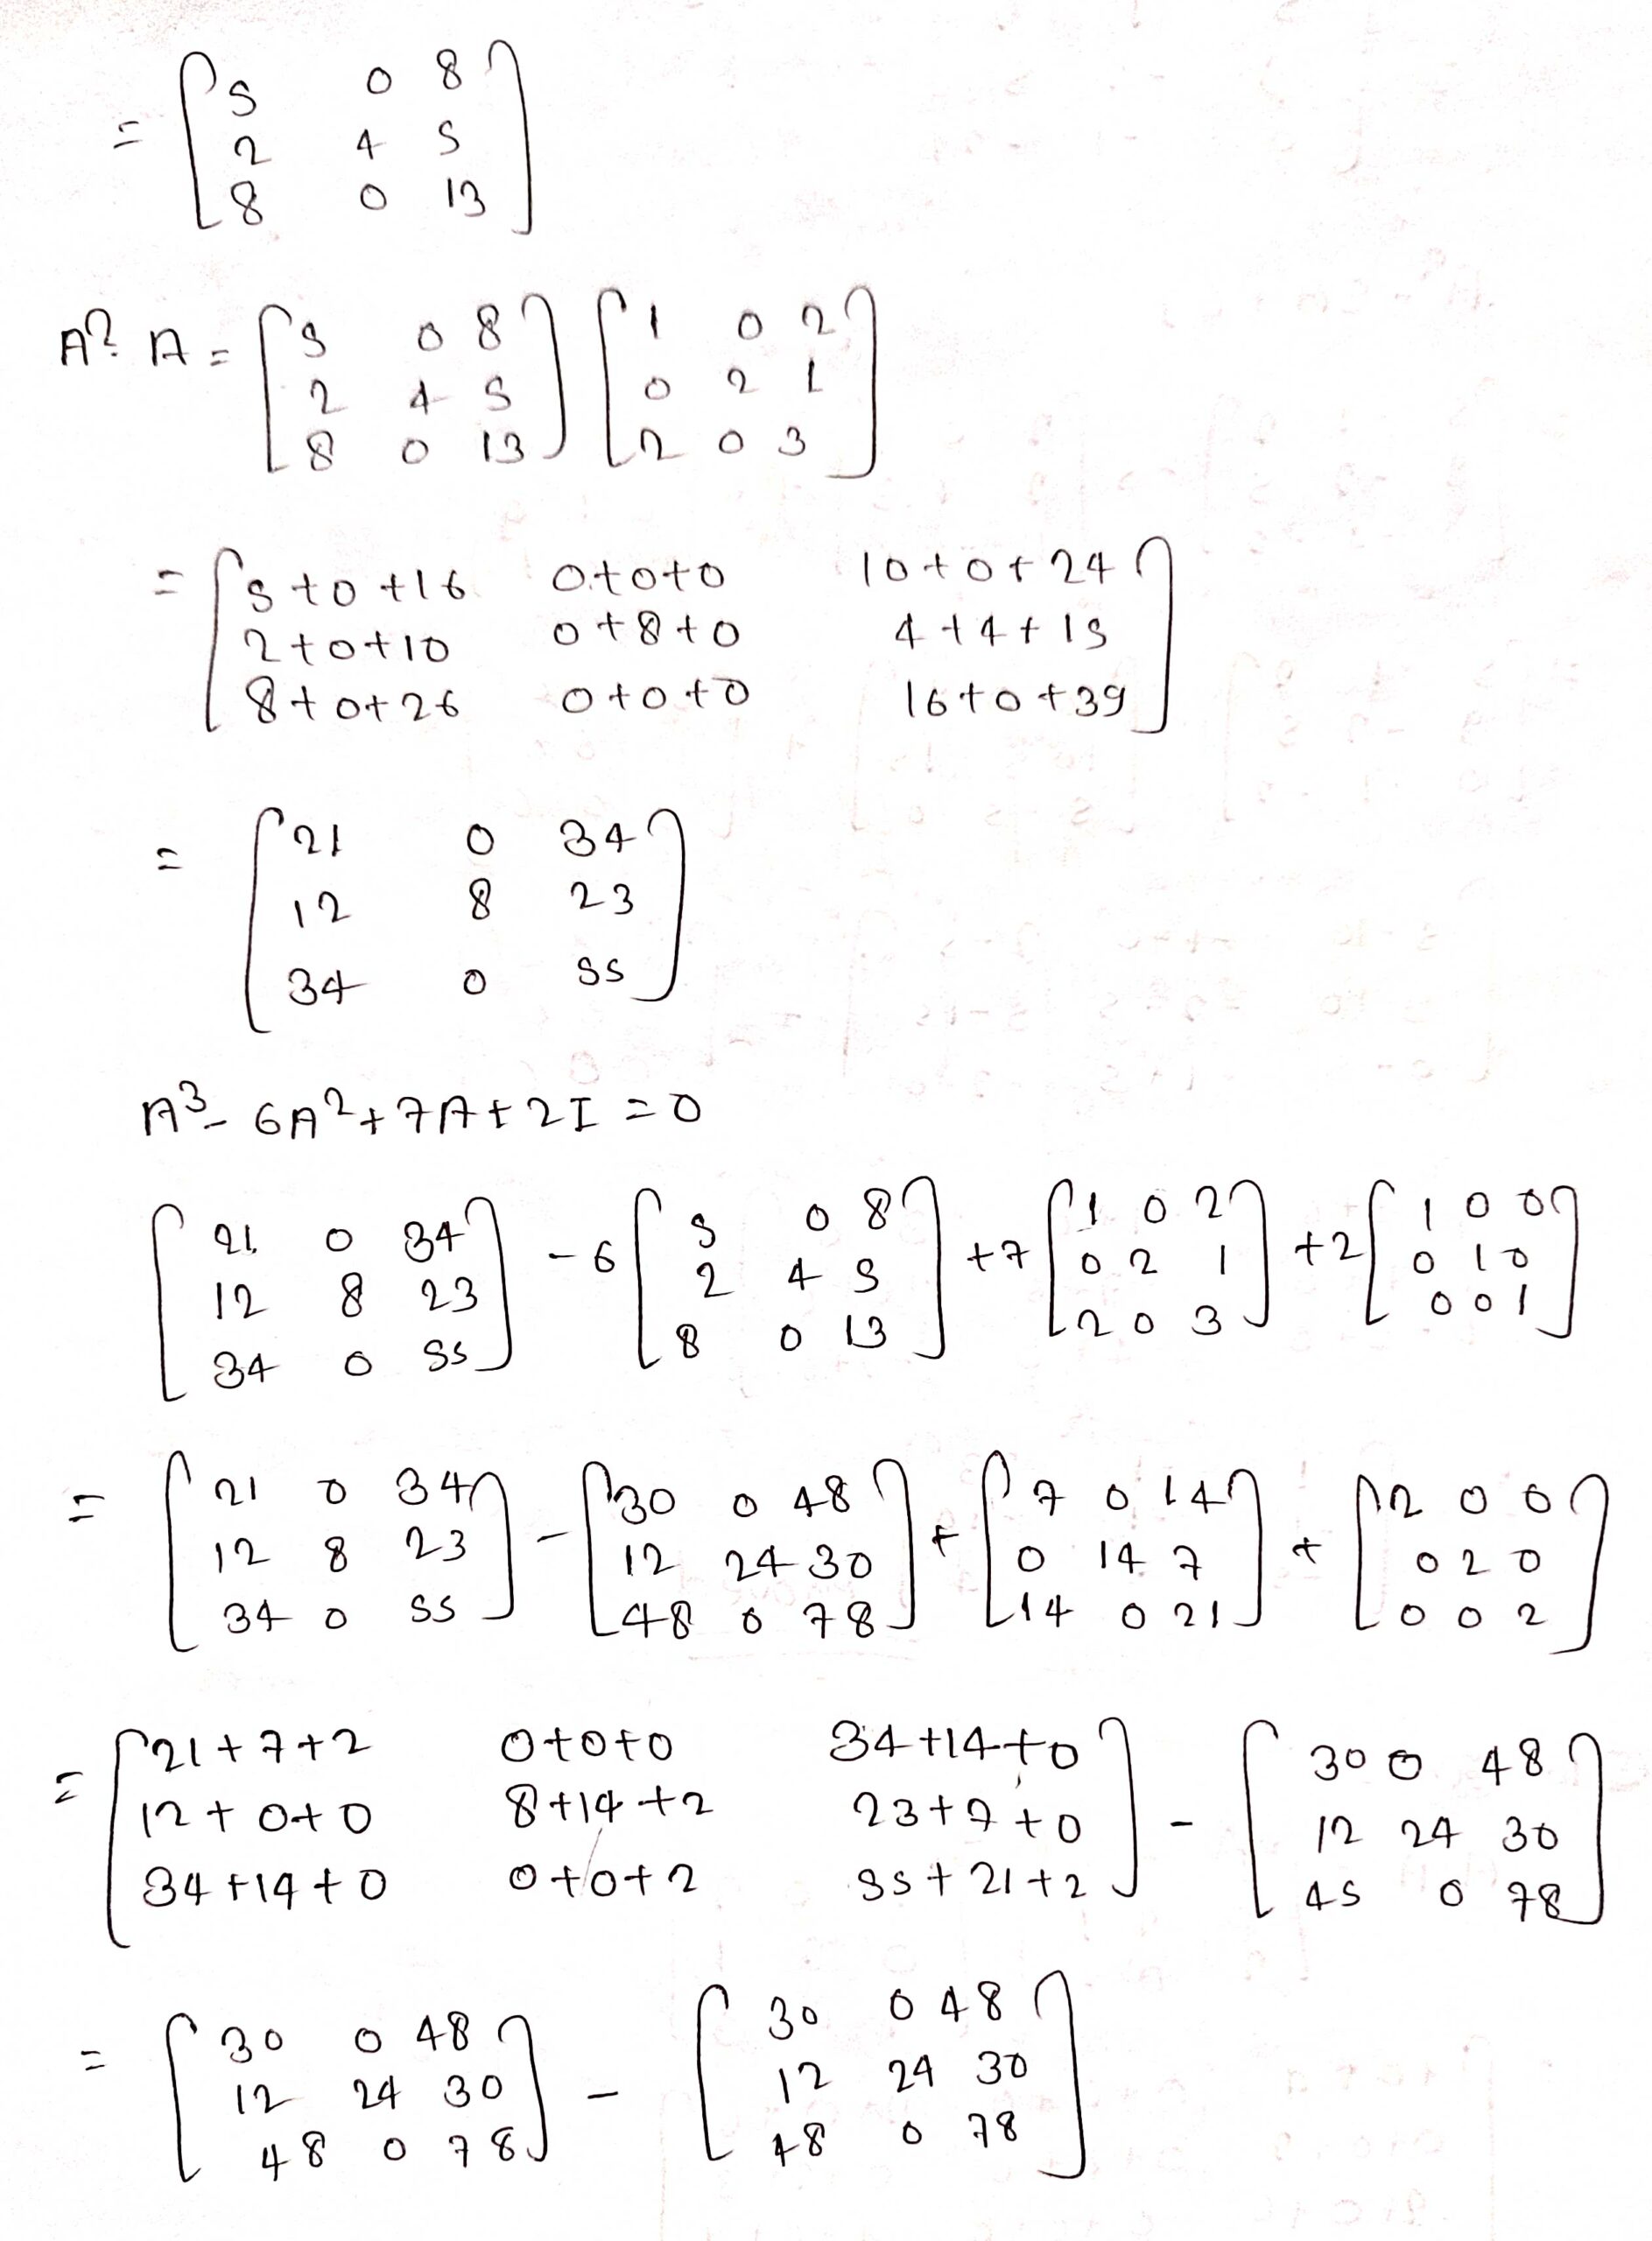 = [5 0 8
2 4 5
8 0 13]
A². A = [5 0 8 2 4 5 8 0 13] [1 0 2 0 2 1 2 0 3]
= [5+0+16 0+0+0 10+0+24
2+0+10 0+8+0 4+4+15
8+0+26 0+0+0 16+0+39]
= [21 0 34
12 8 23
34 0 55]
A³- 6A²+7A+2I =0
[21 0 34 12 8 23 34 0 55] -6 [5 0 8 2 4 5 8 0 13] +7 [1 0 2 0 2 1 2 0 3] +2 [1 0 0 0 1 0 0 0 1]
= [21 0 34 12 8 23 34 0 55] - [30 0 48 12 24 30 48 0 78] + [7 0 14 0 14 7 14 0 21] + [2 0 0 0 2 0 0 0 2]
= [21+7+2 0+0+0 34+14+0 12+0+0 8+14+2 23+7+0 34+14+0 0+0+2 55+21+2] - [30 0 48 12 24 30 45 0 78]
= [30 0 48 12 24 30 48 0 78] - [30 0 48 12 24 30 48 0 78]